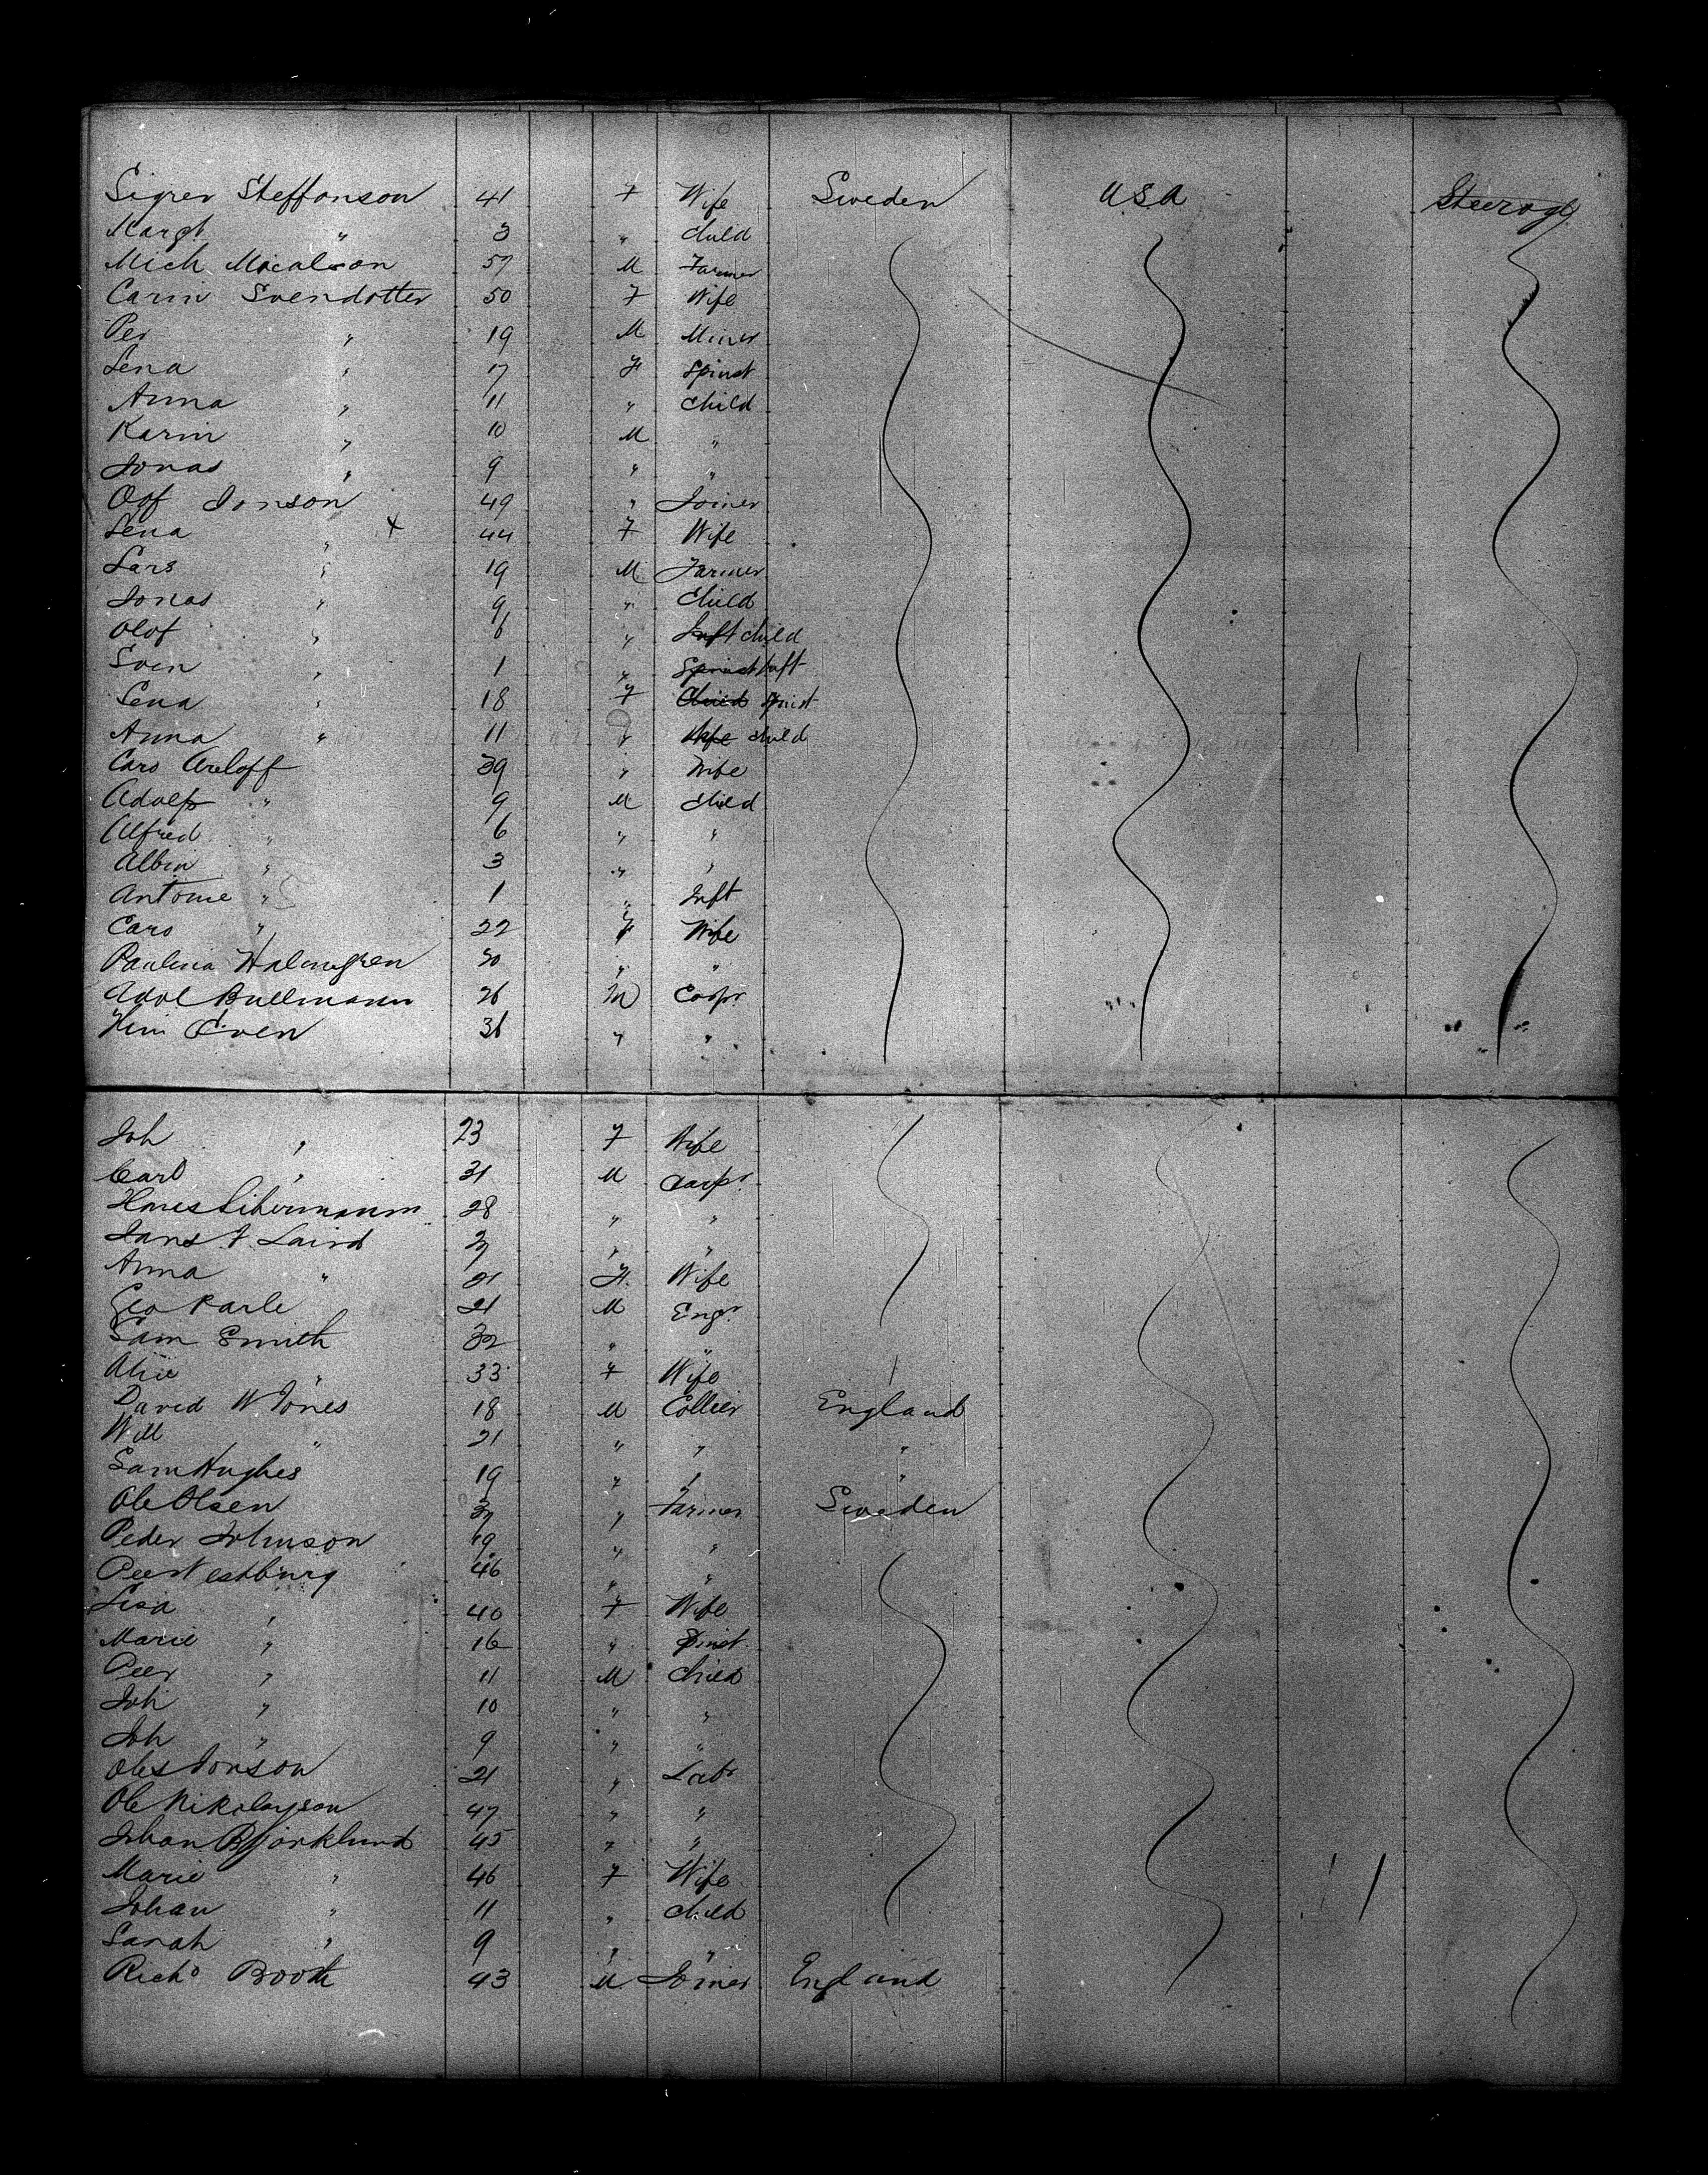 Sigrer Steffanson 41 F Wife Sweden USA Steerage
Margt " 3 " Child
Mich Micalson 57 M Farmer
Carin Svendotter 50 F Wife
Per " 19 M Miner
Lena " 17 F Spinst
Anna " 11 " Child
Karin " 10 M "
Jonas " 9 " "
Olof Jonson 49 " Joiner
Lena " X 44 F Wife
Lars " 19 M Farmer
Jonas " 9 " Child
Olof " 6 " Inft child
Sven " 1 " Spinst Inft
Lena " 18 F Child Spinst
Anna " 11 " Wife child
Caro Areloff 39 " Wife
Adolf " 9 M Child
Alfred " 6 " "
Albin " 3 " "
Antoine " 1 " Inft
Caro " 22 F Wife
Paulina Halmgren 30 " "
Adol Bullmann 26 M Carpr
Oven 36 " "
Joh " 23 F Wife
Carl " 31 M Carpr
Libermann 28 " "
Laird " "
Anna " 21 F Wife
Geo Karle 21 M Engr
Sam Smith 32 " "
Alice " 33 F Wife
David W Jones 18 M Collier England
Will " 21 " " "
Sam Hughes 19 " " "
Ole Olsen 37 " Farmer Sweden
Peder Johnson 19 " "
Peer Vestburg 46 " "
Lisa " 40 F Wife
Marie " 16 " Spinst
Peer " 11 M Child
Joh " 10 " "
Joh " 9 " "
Jonson 21 " Labr
Ole Nikolayson 47 " "
Johan Bjorklund 45 " "
Marie " 46 F Wife
Johan " 11 " Child
Sarah " 9 " "
Richd Booth 43 M Joiner England